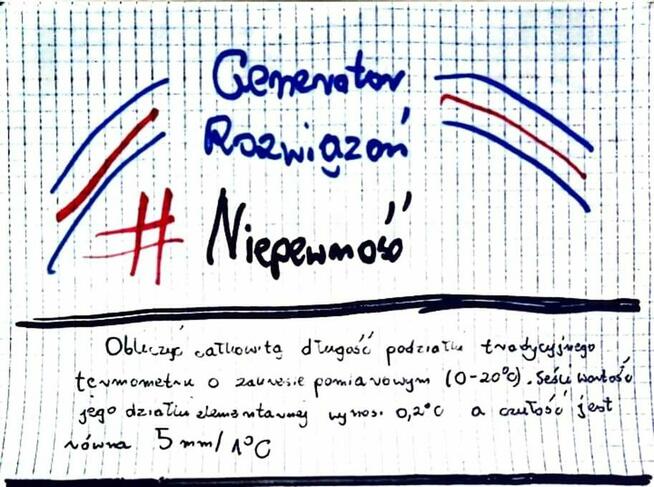 Generator
Rozwiązań
# Niepewność
Obliczyć całkowitą długość podziałki tradycyjnego
termometru o zakresie pomiarowym (0-20°C). Jeśli wartość
jego działki elementarnej wynosi 0,2°C a czułość jest
równa 5 mm/1°C